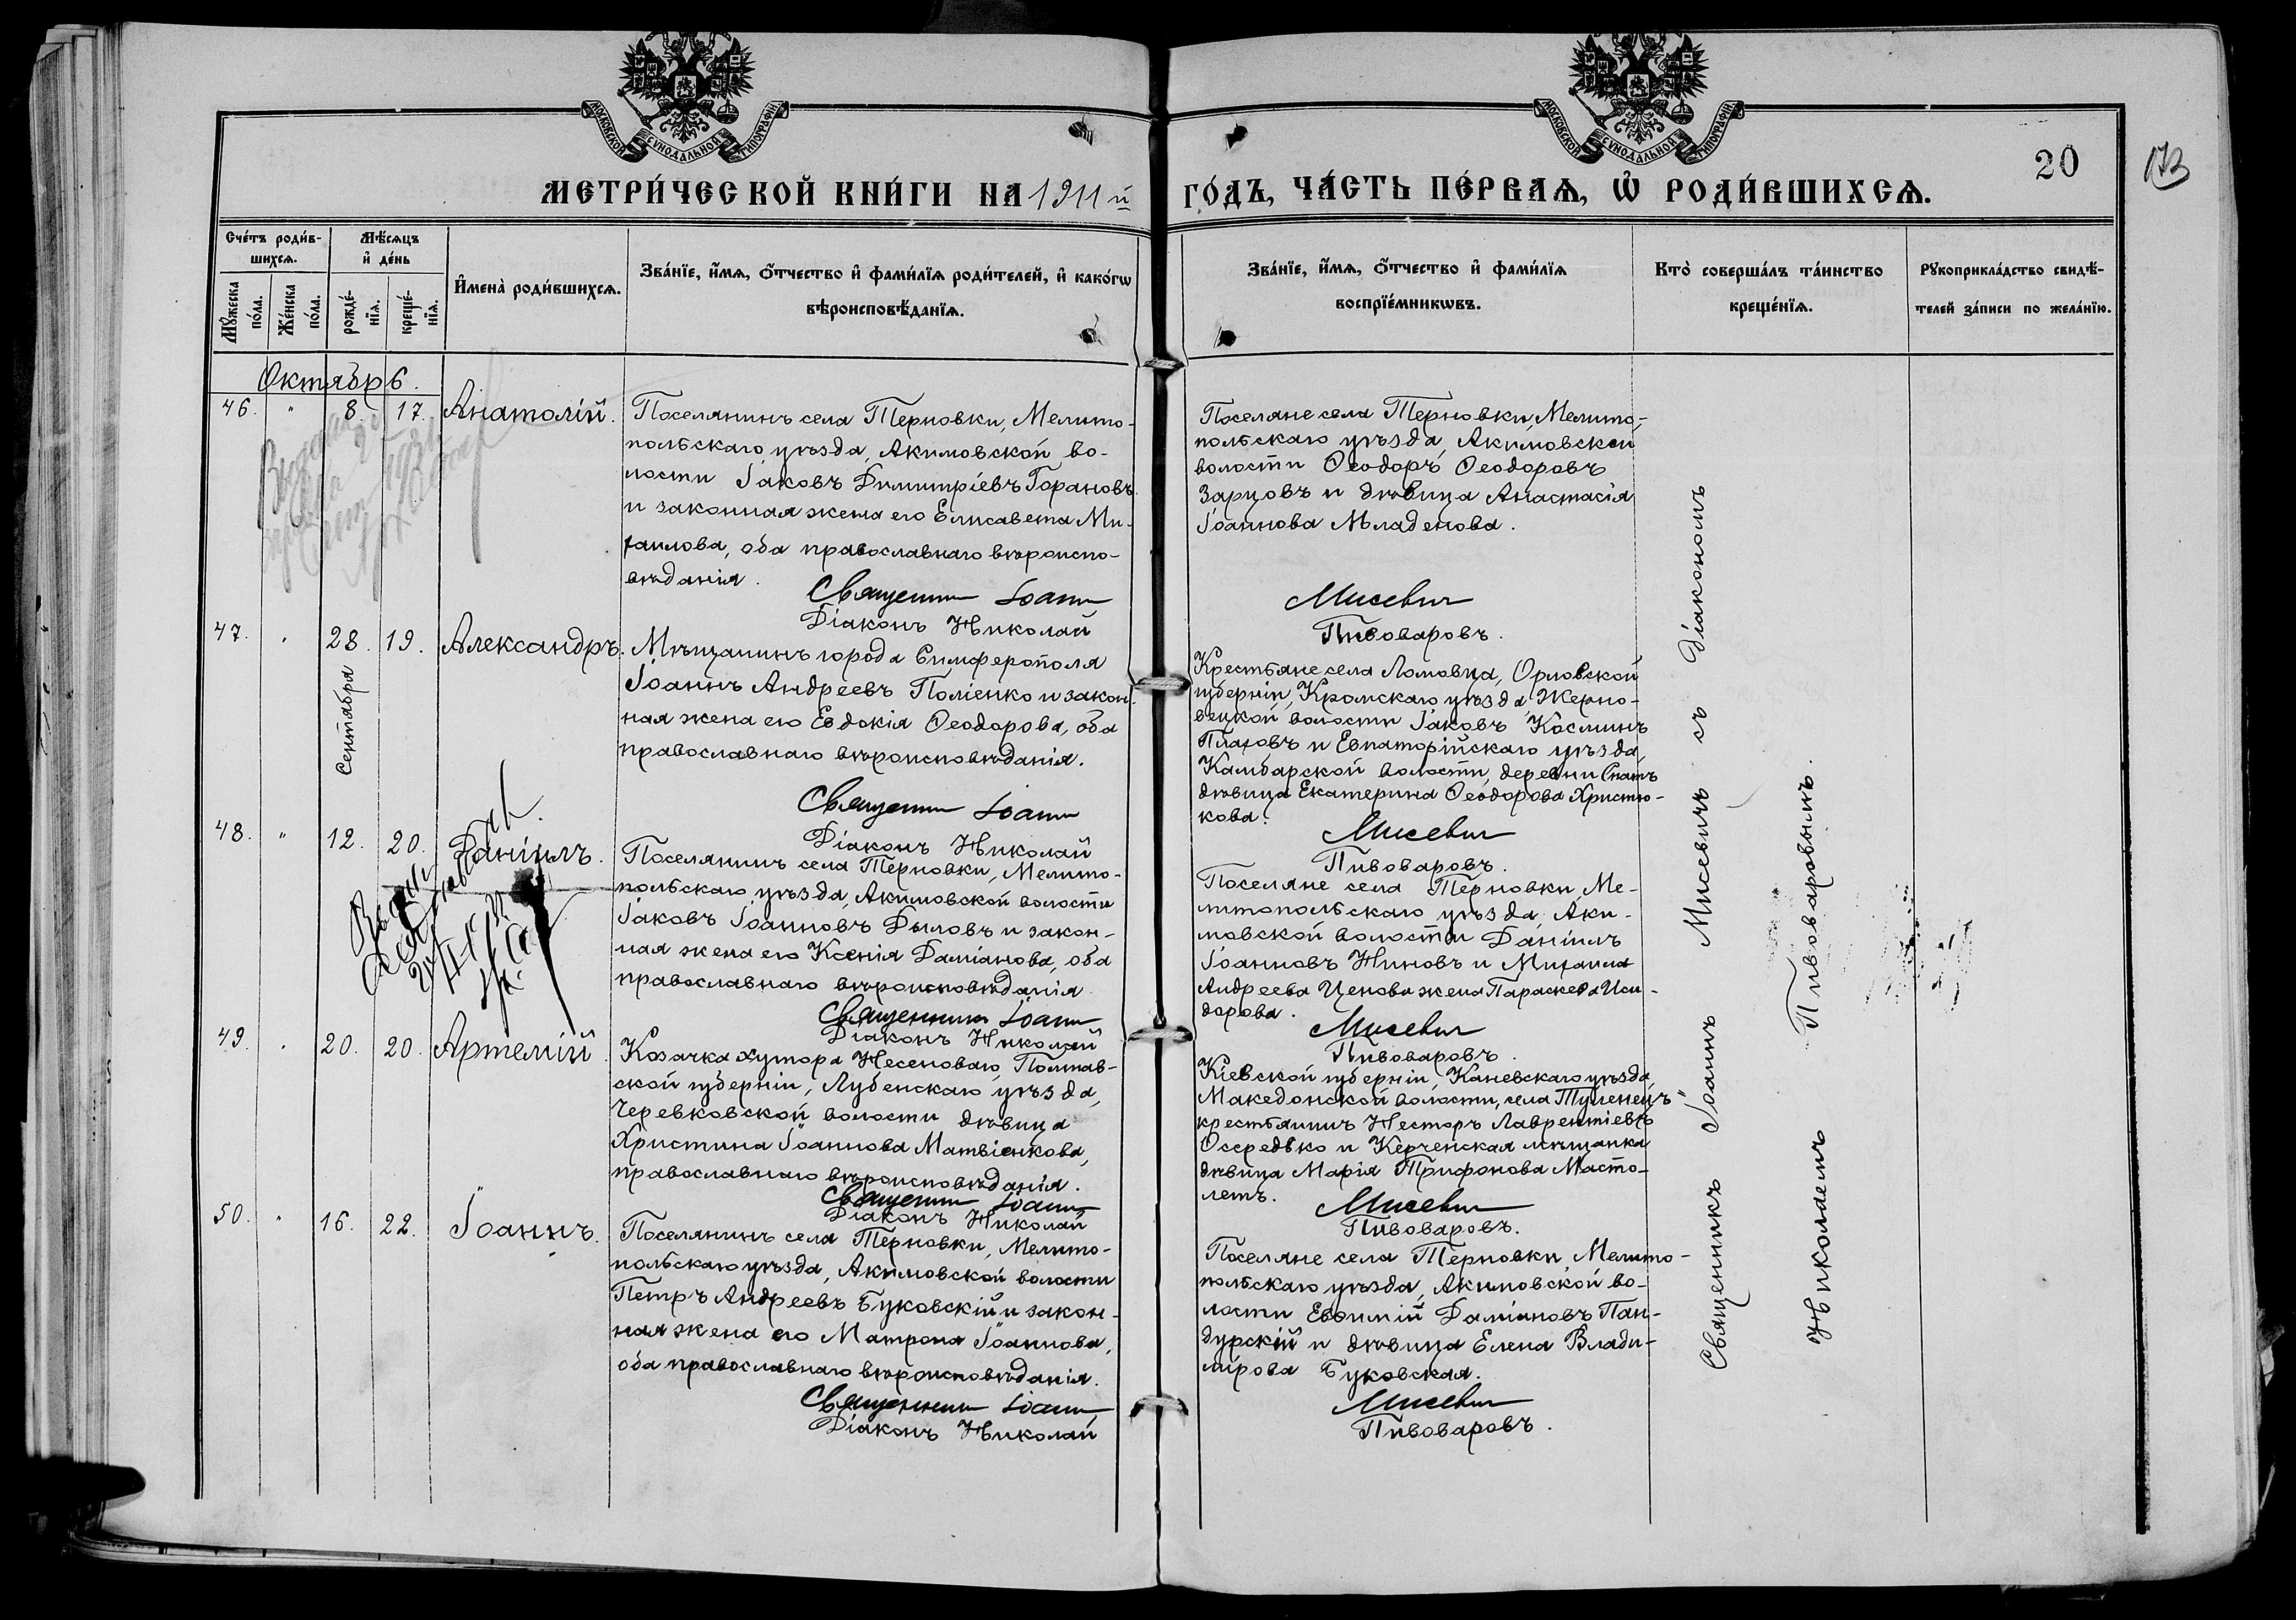 МОСКОВСКОЙ СѴНОДАЛЬНОЙ ТИПОГРАФІИ
МОСКОВСКОЙ СѴНОДАЛЬНОЙ ТИПОГРАФІИ
20
173
МЕТРИ́ЧЕСКОЙ КНИ́ГИ НА 1911 й
ГО́ДЪ, ЧА́СТЬ ПЕ́РВАѦ, Ѡ҆ РОДИ́ВШИХСѦ.
Сче́тъ роди́в-
шихсѧ.
Мꙋ́жеска
по́ла.
Же́нска
по́ла.
Мѣ́сѧцъ
и҆ де́нь
рожде́-
нїѧ.
креще́-
нїѧ.
И҆мена̀ роди́вшихсѧ.
Зва́нїе, и҆́мѧ, ѻ҆́тчество и҆ фами́лїѧ роди́телей, и҆ како́гѡ
вѣроисповѣ́данїѧ.
Зва́нїе, и҆́мѧ, ѻ҆́тчество и҆ фами́лїѧ
воспрїе́мникѡвъ.
Кто̀ соверша́лъ та́инство
креще́нїѧ.
Рꙋкоприкла́дство свидѣ́-
телей за́писи по жела́нїю.
Октябрь.
46. " 8. 17. Анатолій.
Поселянинъ села Терновки, Мелито-
польскаго уѣзда, Акимовской во-
лости Іаковъ Димитріевъ Горановъ
и законная жена его Елисавета Ми-
хаилова, оба православнаго вѣроиспо-
вѣданія.
Священникъ Іоаннъ
Діаконъ Николай
Поселяне села Терновки, Мелито-
польскаго уѣзда, Акимовской
волости Ѳеодоръ Ѳеодоровъ
Зарцовъ и дѣвица Анастасія
Іоаннова Младенова.
Мисевичъ
Пивоваровъ.
47. " 28. 19. Александръ.
Сентября
Мѣщанинъ города Симферополя
Іоаннъ Андреевъ Поліенко и закон-
ная жена его Евдокія Ѳеодорова, оба
православнаго вѣроисповѣданія.
Священникъ Іоаннъ
Діаконъ Николай
Крестьяне села Ломовца, Орловской
губерніи, Кромскаго уѣзда, Жерно-
вецкой волости Іаковъ Косминъ
Платовъ и Евпаторійскаго уѣзда,
Камбарской волости, деревни Спатъ
дѣвица Екатерина Ѳеодорова Христю-
кова.
Мисевичъ
Пивоваровъ.
48. " 12. 20. Даніилъ.
Поселянинъ села Терновки, Мелито-
польскаго уѣзда, Акимовской волости
Іаковъ Іоанновъ Дыловъ и закон-
ная жена его Ксенія Даміанова, оба
православнаго вѣроисповѣданія.
Священникъ Іоаннъ
Діаконъ Николай
Поселяне села Терновки, Ме-
литопольскаго уѣзда, Аки-
мовской волости Даніилъ
Іоанновъ Ниновъ и Михаила
Андреева Ценова жена Параскева Иси-
дорова.
Мисевичъ
Пивоваровъ.
49. " 20. 20. Артемій.
Козачка хутора Несеноваго, Полтав-
ской губерніи, Лубенскаго уѣзда,
Черевковской волости дѣвица
Христина Іоаннова Матвіенкова,
православнаго вѣроисповѣданія.
Священникъ Іоаннъ
Діаконъ Николай
Кіевской губерніи, Каневскаго уѣзда,
Македонской волости, села Тулепецъ
крестьянинъ Несторъ Лаврентіевъ
Осередько и Керченская мѣщанка
дѣвица Марія Трифонова Масто-
летъ.
Мисевичъ
Пивоваровъ.
50. " 16. 22. Іоаннъ.
Поселянинъ села Терновки, Мелито-
польскаго уѣзда, Акимовской волости
Петръ Андреевъ Буковскій и закон-
ная жена его Матрона Іоаннова,
оба православнаго вѣроисповѣданія.
Священникъ Іоаннъ
Діаконъ Николай
Поселяне села Терновки, Мелито-
польскаго уѣзда, Акимовской во-
лости Евѳимій Даміановъ Пан-
дурскій и дѣвица Елена Влади-
мірова Буковская.
Мисевичъ
Пивоваровъ.
Священникъ Іоаннъ Мисевичъ съ Діакономъ
Николаемъ Пивоваровымъ.